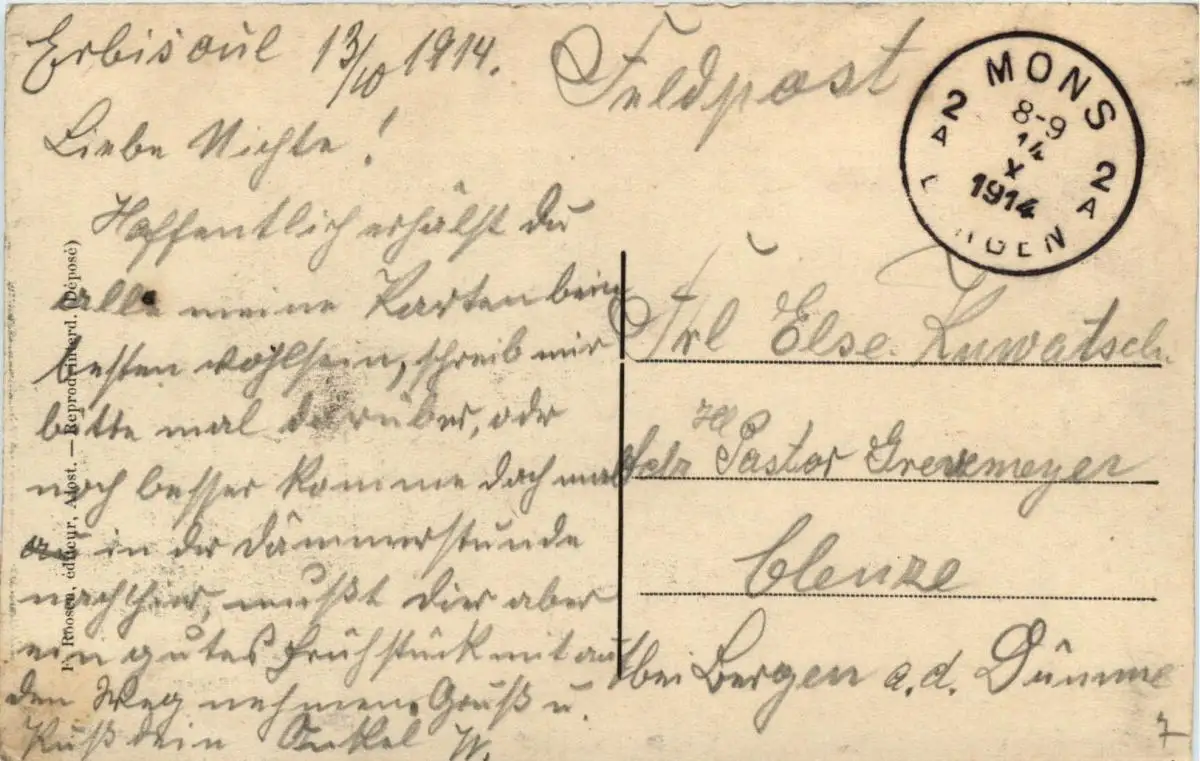 Erbisoul 13/10 1914.
Feldpost
MONS
8-9
14
X
1914
2 A
2 A
Liebe Nichte!
Hoffentlich erhälst du
alle meine Karten beim
besten wohlsein, schreib mir
bitte mal darüber, oder
noch besser komme doch mal
in der Dämmerstunde
nach hier, mußt dier aber
ein gutes Frühstück mit auf
den Weg nehmen. Gruß u.
Kuß dein Onkel W.
Frl Else
Pastor Grevemeyer
Clenze
bei Bergen a.d. Dumme
F. Roosen, éditeur, Alost. — Reprod. interd. (Déposé)
7